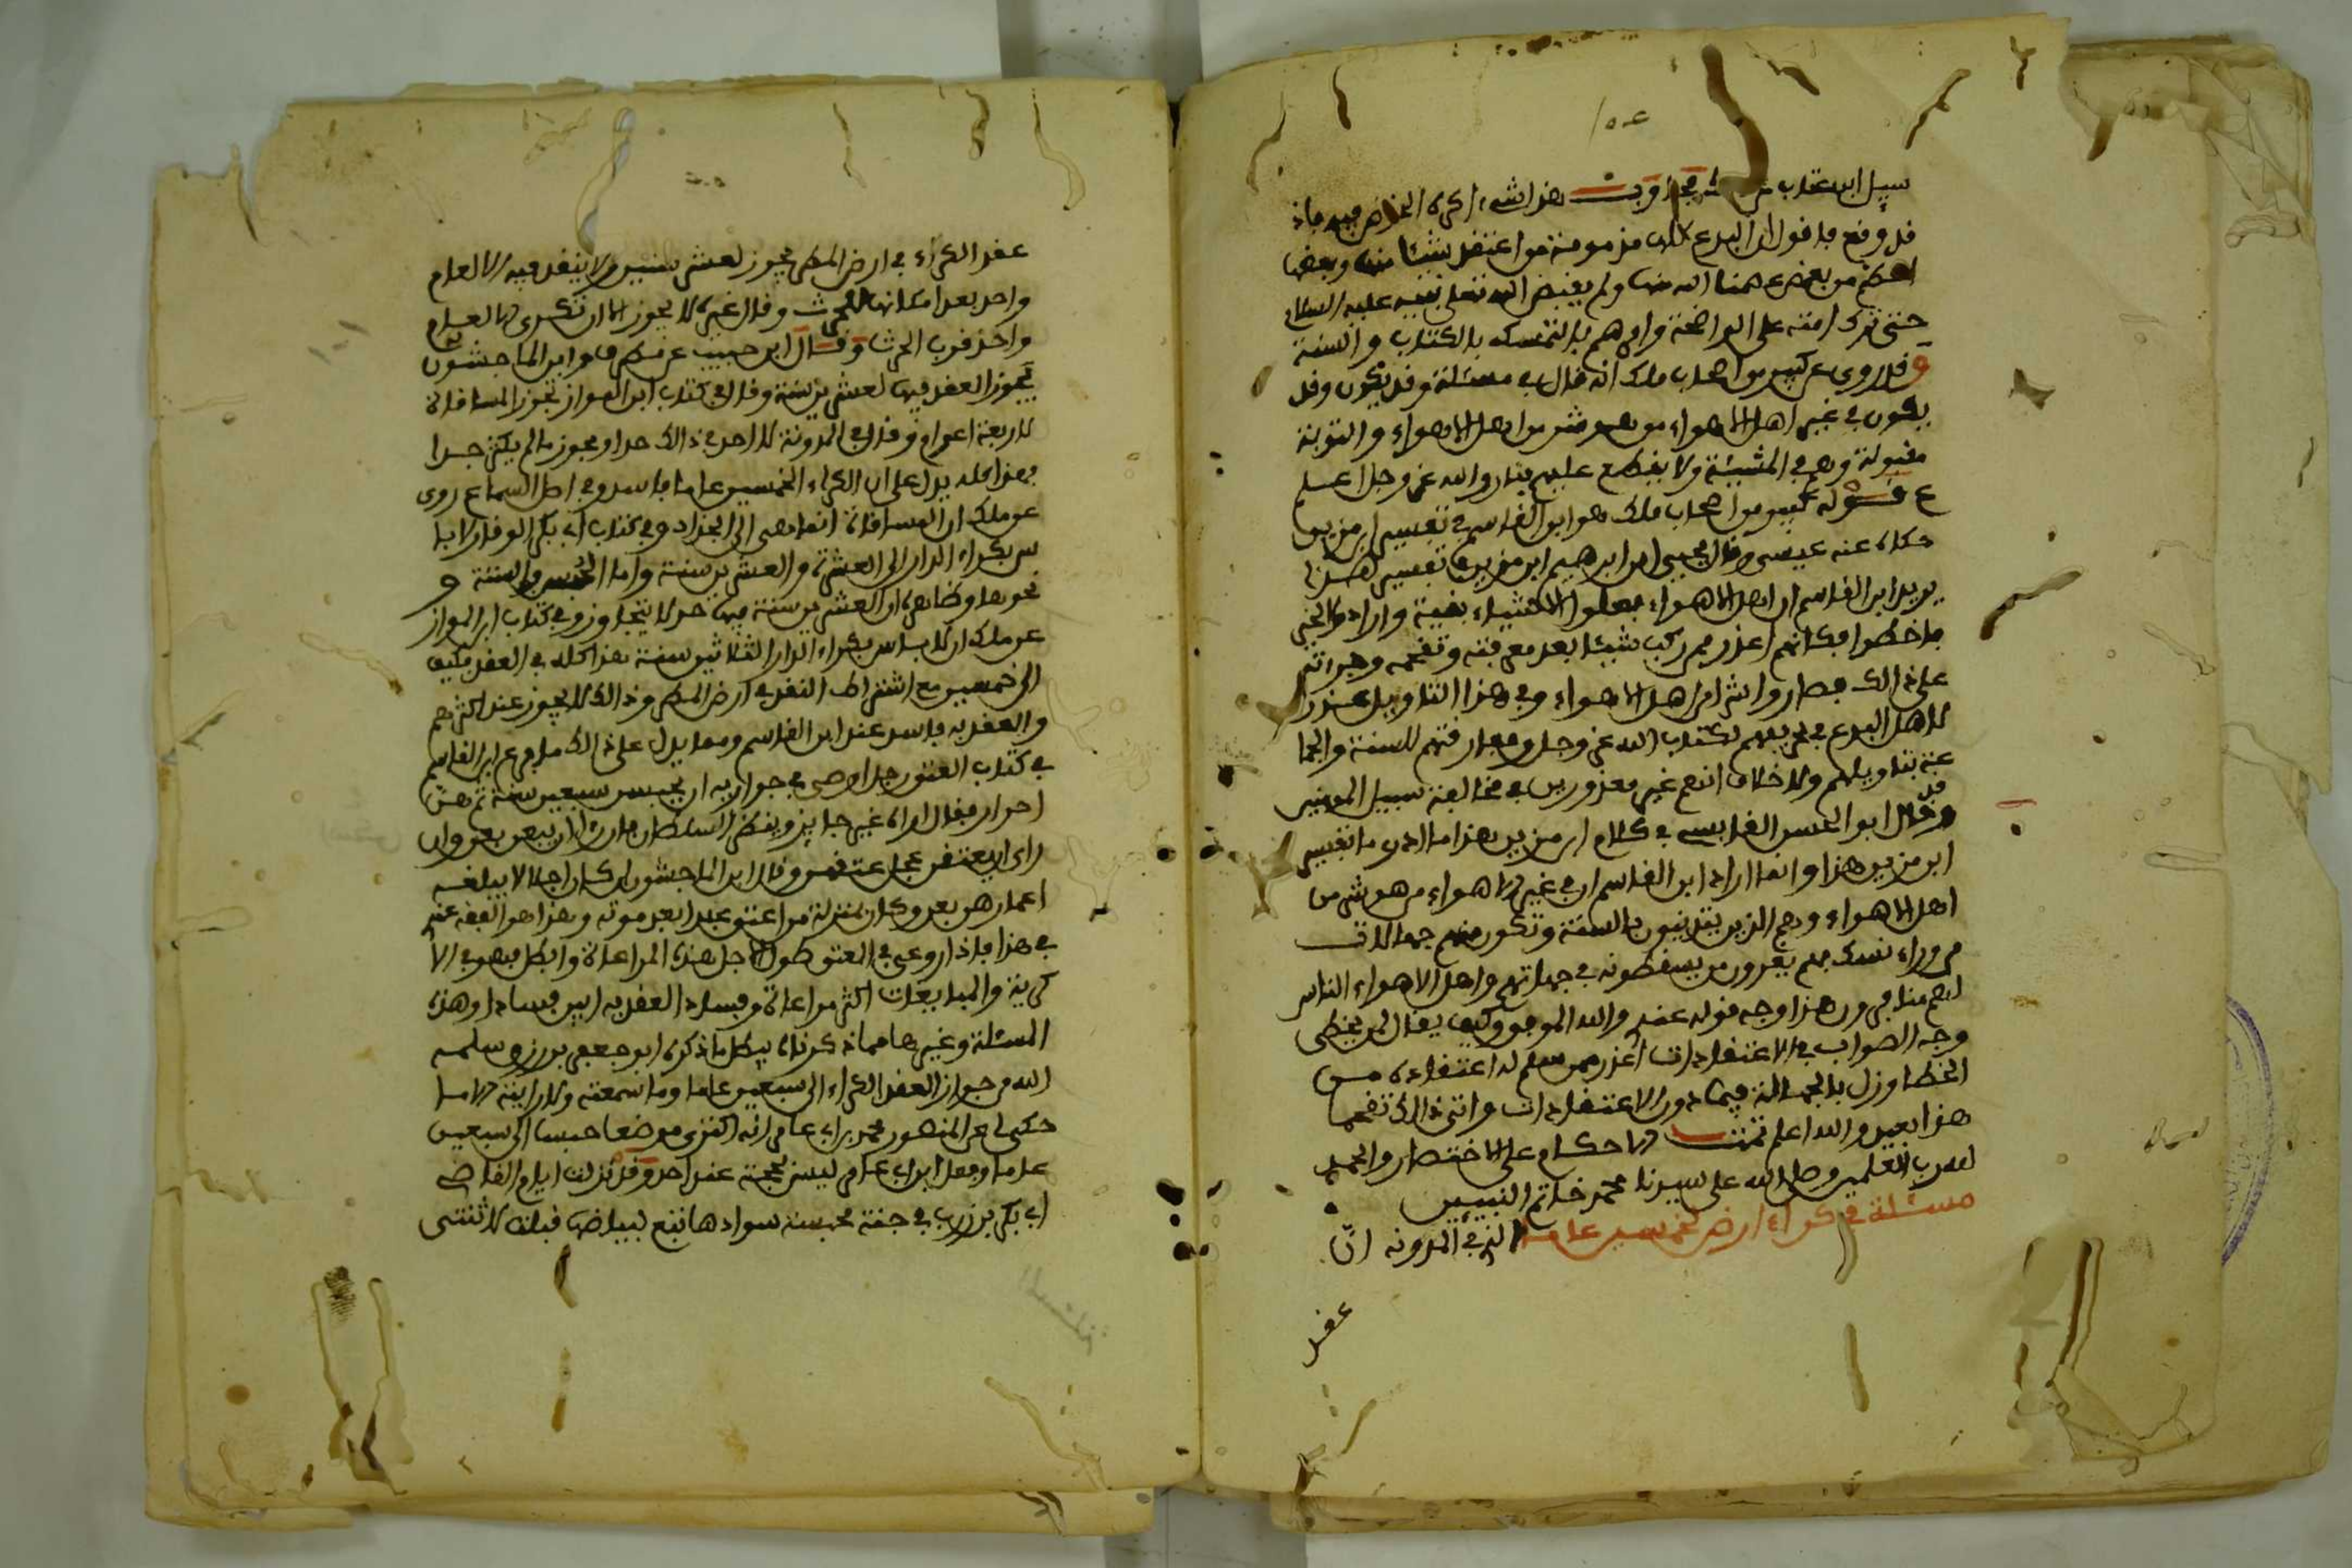 سيل ابن عتاب عن هذا شيء اكره الخوض فيه فاذ
قد وقع فاقول ان البدع كلها مذمومة من اعتقد شيئا منها وبعضها
اعظم من بعض عصمنا الله منها ولم يقبض الله تعلى نبيه عليه السلام
حتى ترك امته على الواضحة وامرهم بالتمسك بالكتاب والسنة
وقد روى عن كبير من اصحاب ملك انه قال في مسئلة وقد يكون وقد
يكون في غير اهل الاهواء من هو شر من اهل الاهواء والتوبة
مقبولة وهم في المشيئة ولا يقطع عليهم بنار والله عز وجل اعلم
ع قوله كبير من اصحاب ملك هو ابن القاسم في تفسير ابن مزين
حكاه عنه عيسى وقال يحيى ابن ابرهيم ابن مزين تفسير هذا
يريد ابن القاسم ان اهل الاهواء جعلوا الاشياء بغية وارادوا الخير
فاخطوا فكانهم اعذر ممن ركب شيئا بعد معرفته وتقحمه وجراته
على ذالك فصاروا شر من اهل الاهواء وفي هذا التاويل عذر
لاهل البدع في تحريفهم لكتاب الله عز وجل ومفارقتهم للسنة والجما
عة بتاويلهم ولا خلاف انهم غير معذورين في مخالفة سبيل المومنين
وقد قال ابو الحسن القابسي في كلام ابن مزين هذا ما ادري ما تفسير
ابن مزين هذا وانما اراد ابن القاسم ان في غير الاهواء من هو شر من
اهل الاهواء وهم الذين يتدينون بالسنة وتكون منهم جهالات
من وراء نسك فهم يغرون من يسقطونه في جهاتهم واهل الاهواء الناس
لهم منافرون هذا وجه قوله عندي والله الموفق وكيف يقال لمن يخطى
وجه الصواب في الاعتقادات اعذر ممن سلم له اعتقاده من
الخطا وزل بالجهالة فيما دون الاعتقادات واتى ذالك تقحما
هذا بعيد والله اعلم تمت الاحكام على الاختصار والحمد
لله رب العلمين وصلى الله على سيدنا محمد خاتم النبيين
مسئلة في كراء ارض لخمسين عاما الذي في المدونة ان
عقد
عقد الكراء في ارض المطر يجوز لعشر سنين ولا ينقد فيه الا لعام
واحد بعد امكانها للحرث وقال غيره لا يجوز الا ان تكرى الا لعام
واحد قرب الحرث وقال ابن حبيب عن مطرف وابن الماجشون
يجوز العقد فيها لعشرين سنة وقال في كتاب ابن المواز تجوز المساقاة
لاربعة اعوام وقال في المدونة لا احد في ذالك حدا ويجوز ما لم يكثر جدا
فهذا كله يدل على ان الكراء لخمسين عاما فاسد وفي اصل السماع روى
عن ملك ان المساقاة انما هي الى الجذاذ وفي كتاب ابي بكر الوقار لا با
س بكراء الدار الى العشرة والعشرين سنة واما السنة و
نحوها وظاهره ان العشرين سنة فيها حد لا يتجاوز وفي كتاب ابن المواز
عن ملك ان لا باس بكراء الدار الثلاثين سنة هذا كله في العقد فكيف
الى خمسين مع اشتراط النقد في ارض المطر وذالك لا يجوز عند اكثرهم
والعقد به فاسد عند ابن القاسم ومما يدل على ذالك ما وقع عن ابن القاسم
في كتاب العتق رجل اوصى في جواريه ان يحبسن سبعين سنة ثم هن
احرار فقال اراه غير جايز وينظر السلطان فان راى ان يبعن بعن وان
راى ان يعتقن عجل عتقهن وقال ابن الماجشون ان كان اجلا لا يبلغه
اعمارهن بعن وكان بمنزلة من اعتق عبدا بعد موته وهذا هو الفقه عندي
في هذا فاذا روعي في العتق طول الاجل هذه المراعاة وابطل فهو في الا
كرية والمبايعات اكثر مراعاة وفساد العقد به ابين فسادا وهذه
المسئلة وغيرها مما ذكرناه يبطل ما ذكره ابو جعفر بن رزق سلمه
الله من جواز العقد الكراء الى سبعين عاما وما سمعته ولا رايته الا ما
حكى لي عن المنصور محمد بن ابي عامر انه اكترى موضعا حبسا الى سبعين
عاما وفعل ابن ابي عامر ليس بحجة عند احد وقد نزلت ايام القاضي
ابي بكر بن زرب في جنة محبسة سوادها تبع لبياضها قبلت لاثنتى